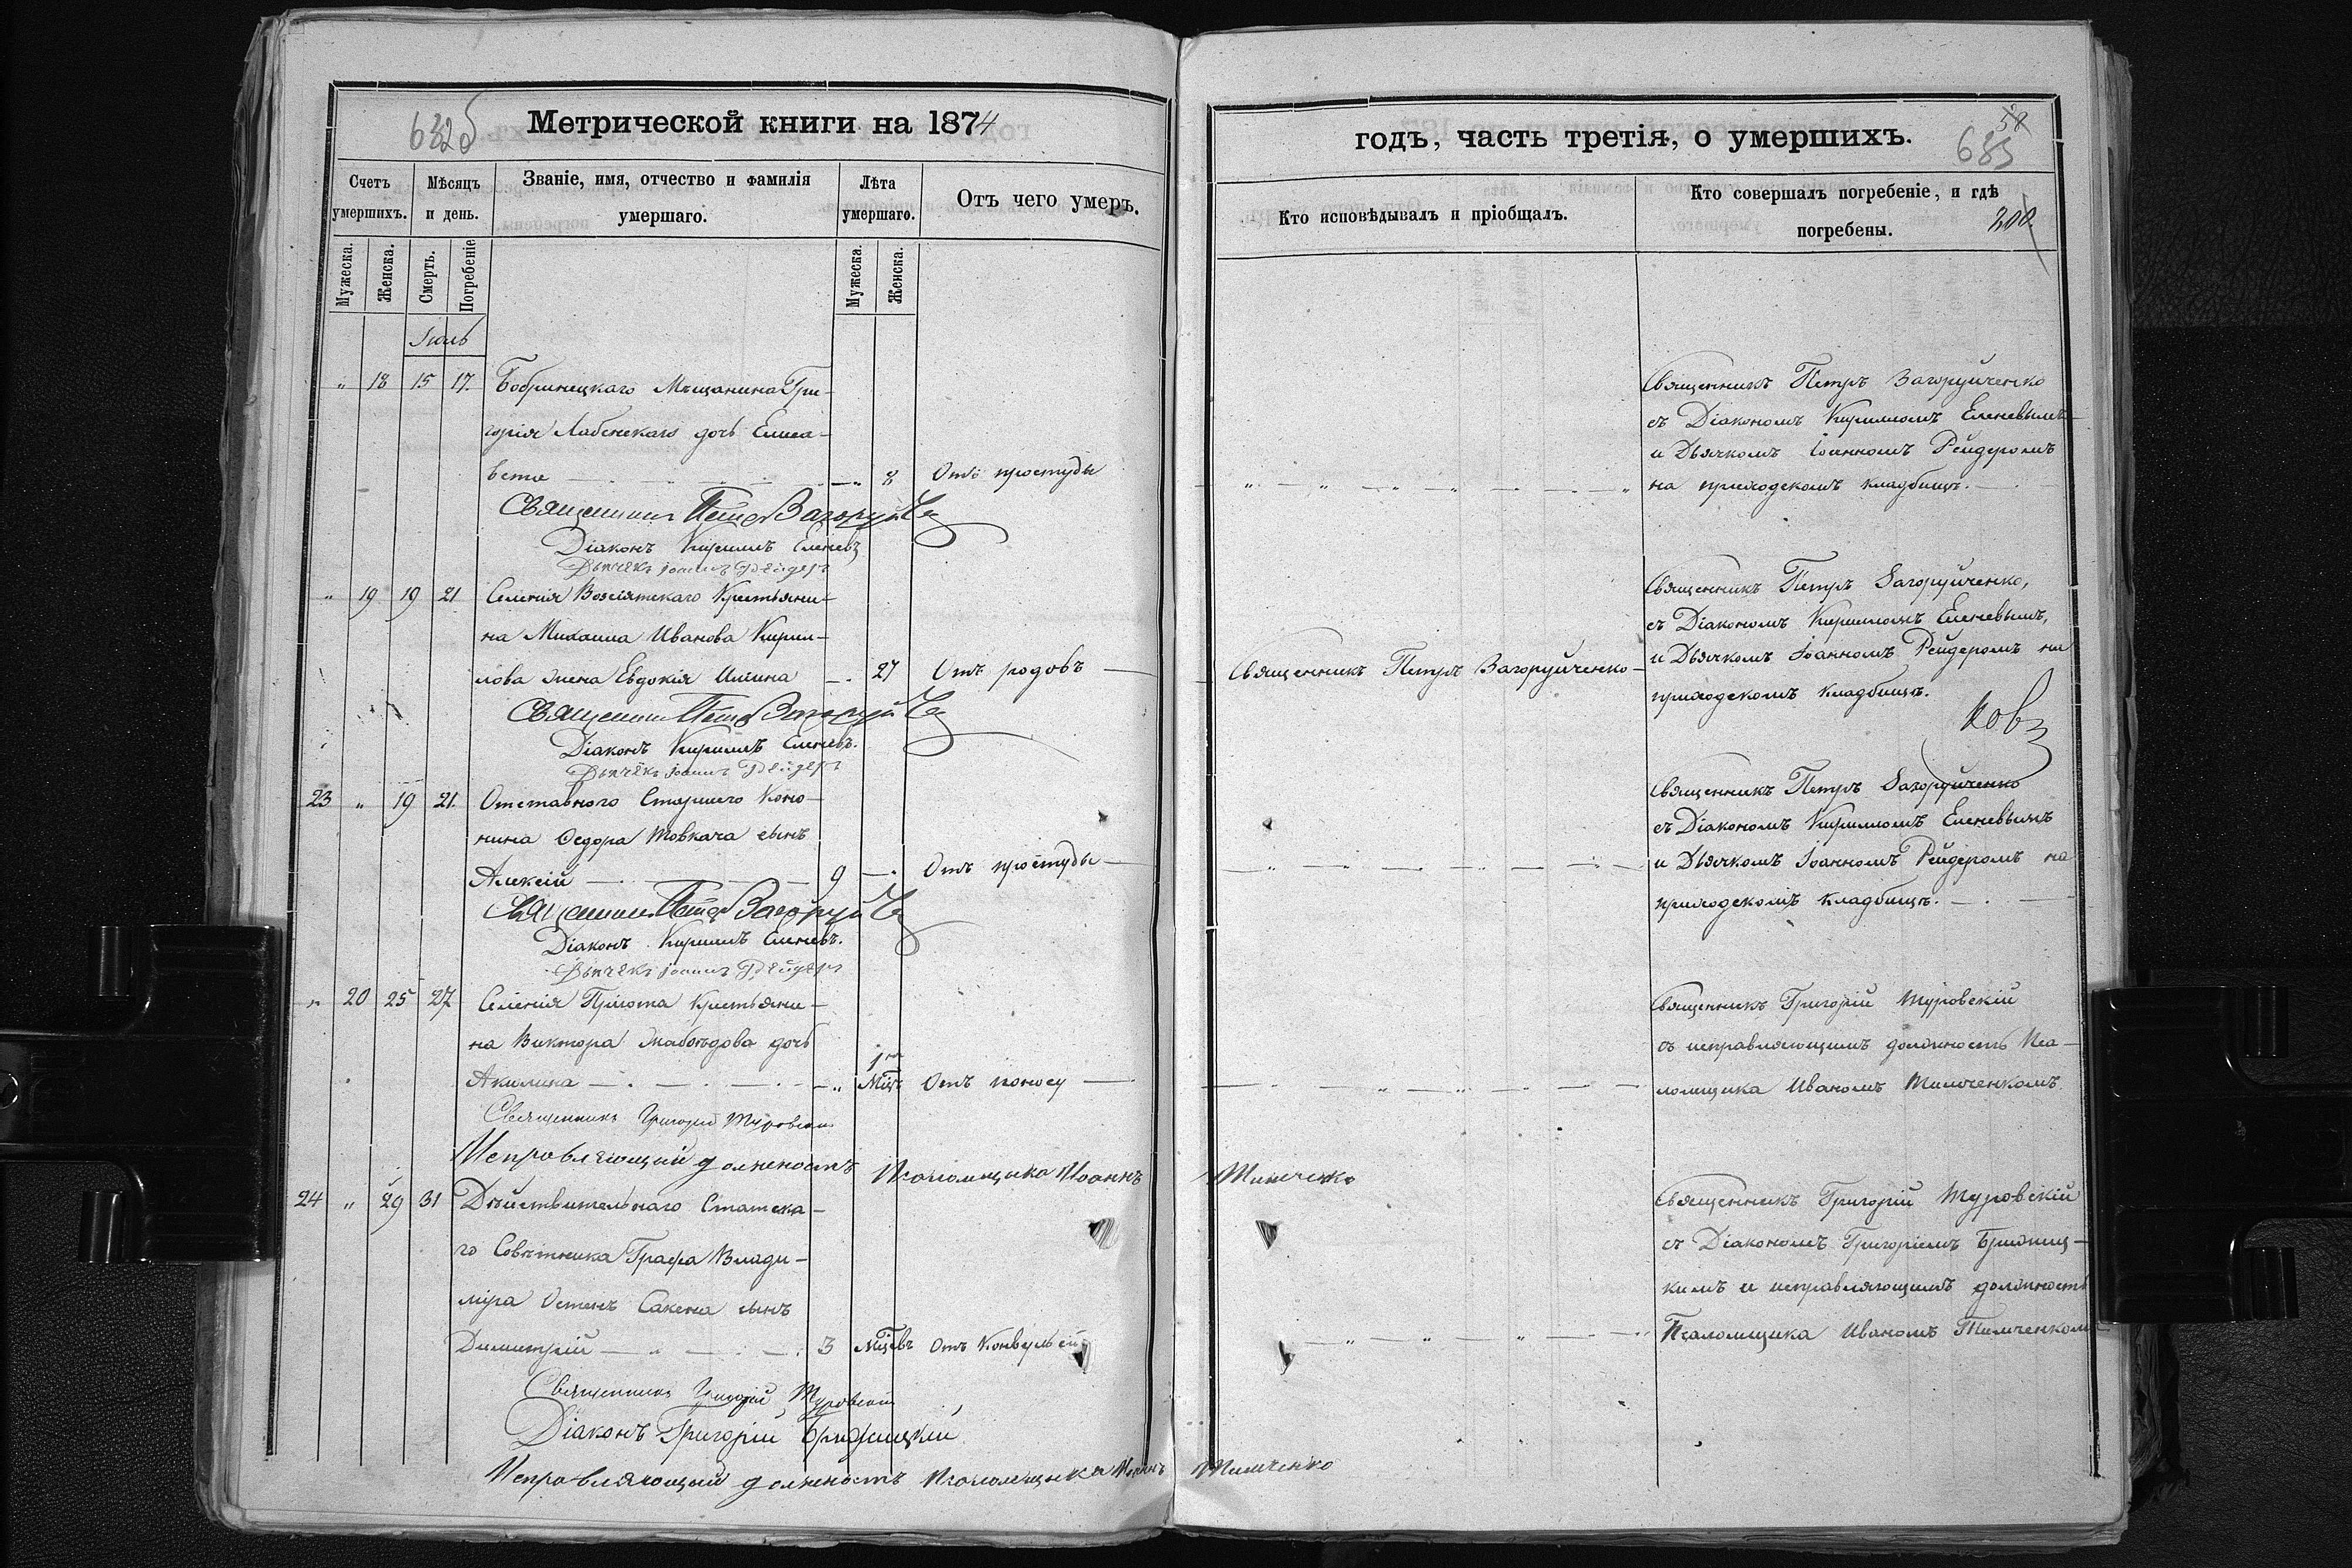 632б
Метрической книги на 1874
Счетъ умершихъ.
Мѣсяцъ и день.
Званіе, имя, отчество и фамилія умершаго.
Лѣта умершаго.
Отъ чего умеръ.
Мужеска.
Женска.
Смерть.
Погребеніе
Мужеска.
Женска.
Іюль
" 18 15 17. Бобринецкаго Мѣщанина Гри-
горія Лабенскаго дочь Елиса-
вета 8 Отъ простуды
Священникъ Петръ Загоруйч
Діаконъ Кириллъ Еленевъ
Дьячекъ Іоаннъ Рейдеръ
" 19 19 21 Селенія Возсіятскаго Крестьяни-
на Михаила Иванова Кирил-
лова жена Евдокія 27 Отъ родовъ
Священникъ Петръ Загоруйч
Діаконъ Кириллъ Еленевъ.
Дьячекъ Іоаннъ Рейдеръ
23 " 19 21. Отставного Старшего Коно-
нина Ѳедора Товкача сынъ
Алексій 9 Отъ простуды
Священникъ Петръ Загоруйч
Діаконъ Кириллъ Еленевъ.
Дьячекъ Іоаннъ Рейдеръ
" 20 25 27 Селенія Крестьяни-
на Виктора дочь
Акилина 1 Мцъ Отъ поносу
Священникъ Григорій Туровскій
Исправляющій должность Псаломщика Іоаннъ Тимченко
24 " 29 31 Дѣйствительнаго Статска-
го Совѣтника Графа Влади-
міра Остенъ Сакена сынъ
Димитрій 3 Мцевъ Отъ Конвульсій
Священникъ Григорій Туровскій
Діаконъ Григорій
Исправляющій должность Псаломщика Іоаннъ Тимченко
годъ, часть третія, о умершихъ.
58
683
200.
Кто исповѣдывалъ и пріобщалъ.
Кто совершалъ погребеніе, и гдѣ
погребены.
Священникъ Петръ Загоруйченко
съ Діакономъ Кирилломъ Еленевымъ
и Дьячкомъ Іоанномъ Рейдеромъ
на приходскомъ кладбищѣ.
Священникъ Петръ Загоруйченко,
съ Діакономъ Кирилломъ Еленевымъ,
и Дьячкомъ Іоанномъ Рейдеромъ на
Священникъ Петръ Загоруйченко
приходскомъ кладбищѣ.
Священникъ Петръ Загоруйченко
съ Діакономъ Кирилломъ Еленевымъ
и Дьячкомъ Іоанномъ Рейдеромъ на
приходскомъ кладбищѣ.
Священникъ Григорій Туровскій
съ исправляющимъ должность Пса-
ломщика Иваномъ Тимченкомъ.
Священникъ Григорій Туровскій
съ Діакономъ Григоріемъ
кимъ и исправляющимъ должность
Псаломщика Иваномъ Тимченком